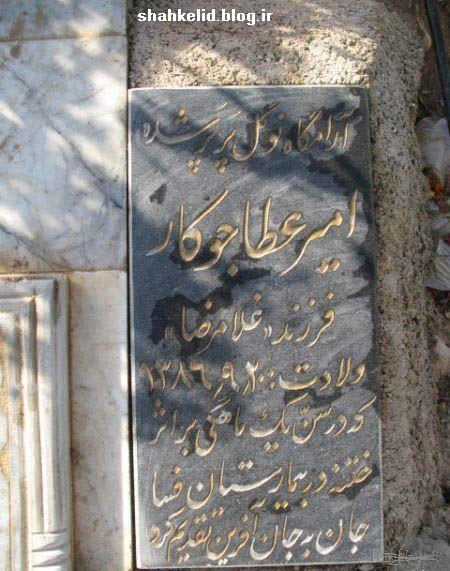 shahkelid.blog.ir
آرامگاه نوگل پَرپَر شده
امیر عطا جوکار
فرزند «غلامرضا»
ولادت: ۱۳۸۶٫۹٫۲۰
که در سنّ یک ماهگی بر اثر
ختنه در بیمارستان فسا
جان به جان آفرین تقدیم کرد